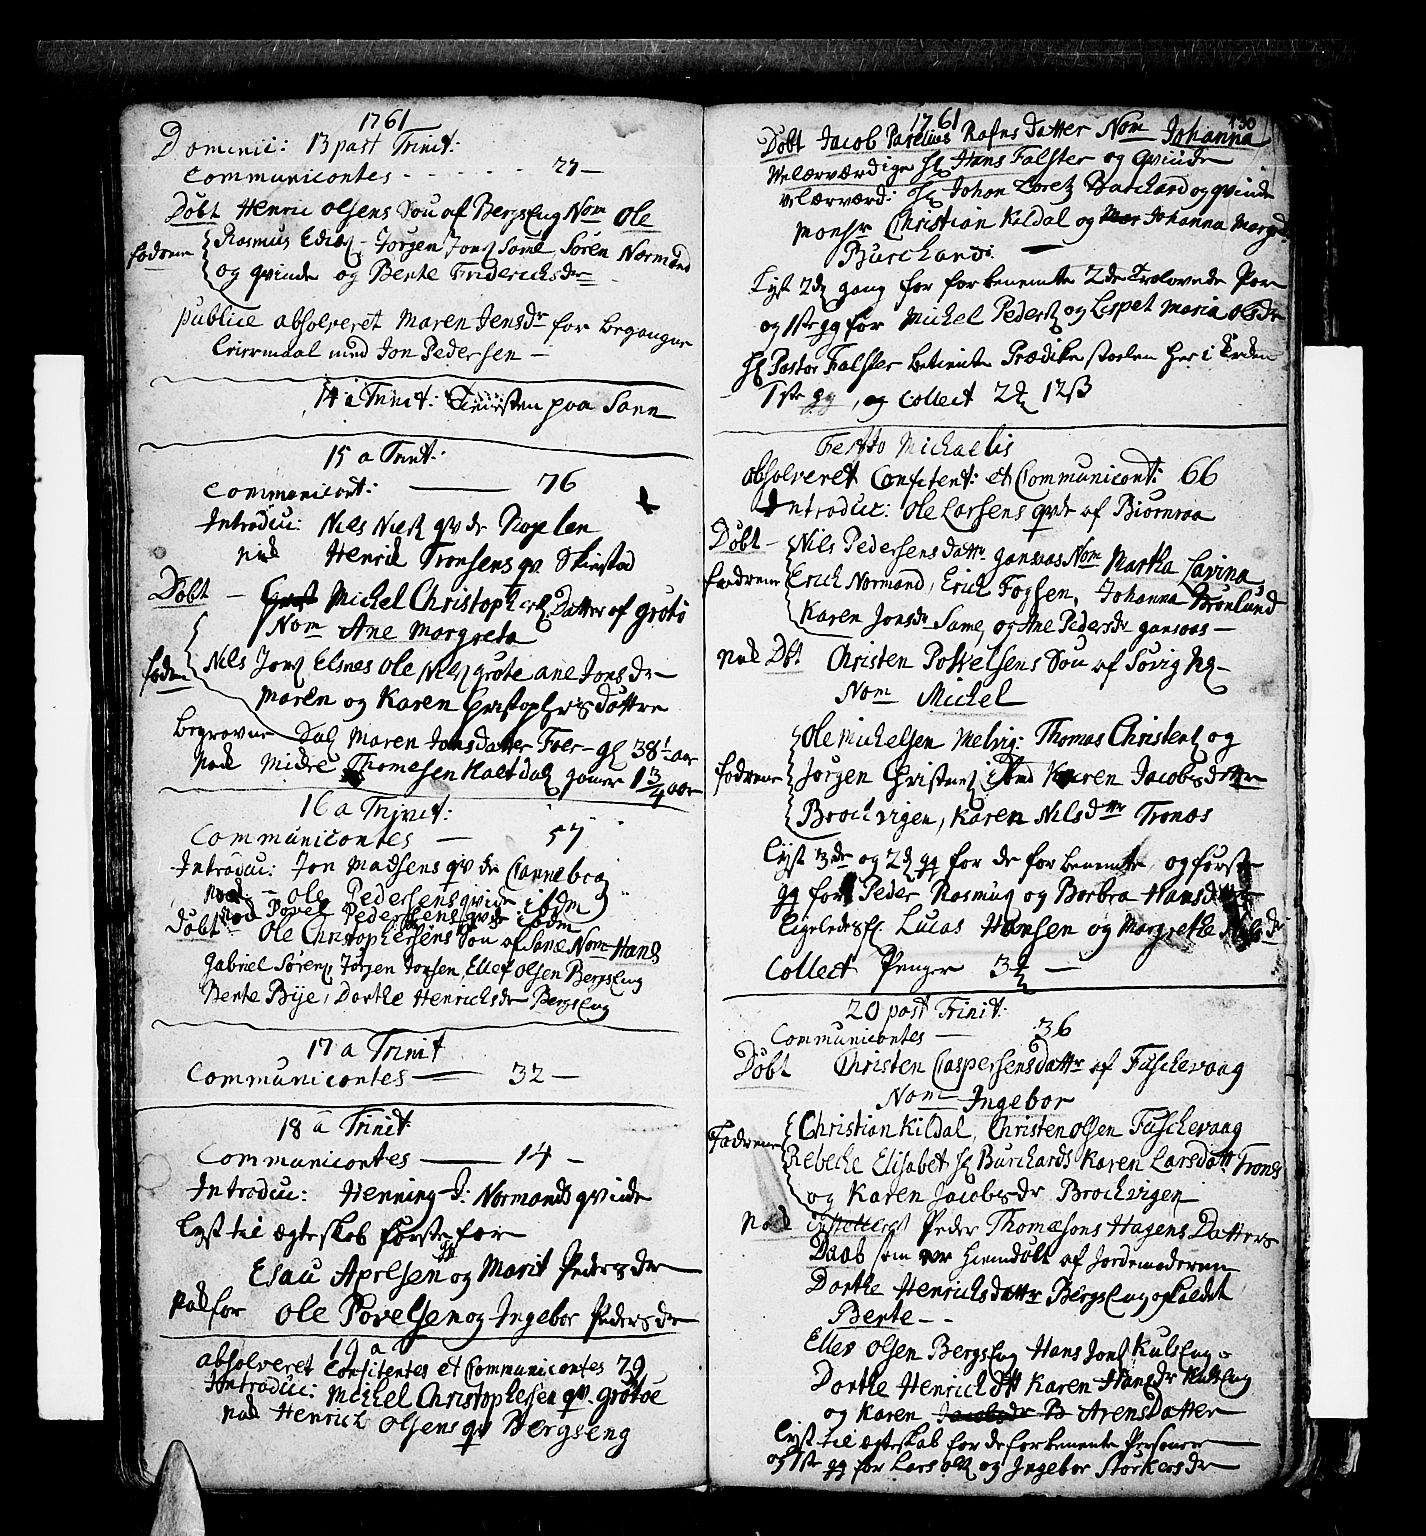 1761
Dominic: 13 past Trinit:
Communicantes - - - - - - 27 —
Døbt Henric Olsens Søn af BergsEng Nom Ole
fadrene Rasmus Jørgen Jons Same Søren Normand
og qvinde og Bente Friderichsdr
publice absolveret Maren Jensdr for begangne
Leiermaal med Jon Pedersen —
14 a Trinit: Tienesten paa Sann
15 a Trinit:
Communicant: —— 76
Introduc: Nils qvde
nock Henric Tronsens qv. Skiestad
Døbt — Michel Christophers Datter af Grøtø
Nom Ane Margreta
fadr Nils Jons Elsnes Ole Nils Grøte Ane Jonsdr —
Maren og Karen Christophersdøttre
Begravne Maren Jonsdatter Foer — gl 38 1/2 aar
nock Thomesen Kaltdal gamer 1 3/4 aar
16 a Trinit:
Communicantes — 57
Introduc: Jon Madsens qvde
nock — Ole Pedersens qvinde ibdm
nock Povel Pedersens qvde ibdm
Døbt Ole Christophersens Søn af Sane Nom Hans
Gabriel Sørens, Jørgen Jonsen, Ellef Olsen BergsEng
Berte Bije, Dorthe Henrichsdr BergsEng
17 a Trinit
Communicantes —— 32 —
18 a Trinit
Communicantes —— 14 —
Introduc: Henning J: Normands qvinde
Lyst til ægteskab første gg for
Esau Apelsen og Marit Pedersdr
nock for Ole Povelsen og Ingebor Pedersdr
19 a
absolveret Confitentes et Communicantes 79
Introduc: Michel Christophersen qv. Grøtøe
nock Henrich Olsens qv Bergseng
1761 130
Døbt Jacob Parelius Rafns Datter Nom Johanna
Velærværdige Hr Hans Falster og qvinde
velærværd: Hr Johan Loretz Burchard og qvinde
Monsr Christian Kildal og Johanna Margr
Burchards. —
Lyst 2den gang for forbenemte 2de Trolovede Par
og 1ste gg for Michel Peders og Lispet Maria Olsdr
Hr Pastor Falster betiente Prædikestoelen her i
1ste gg, og Collect 2 12 ß
Festo Michaelis
absolveret Confitent: et Communicant: 66
Introduc: Ole Larsens qvde af Biørnraa
Døbt — Nils Pedersens dattr gansaas Nom Martha Lavina,
fadrene Erich Normand, Erich Fogsen, Johanna Brønlund
Karen Jonsdr Same, og Ane Pedersdr gansaas —
nock Dbt Christen Povelsens Søn af Sørvig
Nom Michel
Ole Michelsen Melvig: Thomas Christens og
fadrene Jørgen Christens ibmd Karen Jacobsdattr
Brochvigen, Karen Nilsdttr Tronæs
Lyst 3de og 2den gg for de forbenemte, og første
gg for Peder Rasmus og Barbra Hansd
ligeledes f: Lucas Hansen og Margrethe
Collect Penger 3 —
20 post Trinit:
Communicantes — 36
Døbt Christen Caspersens dattr af Fuschevaag
Nom Ingebor
Fadrene Christian Kildal, Christen Olsen Fuschevaag
Rebeche Elisabet Hr Burchards Karen Larsdatt Trones
og Karen Jacobsdr Brochvigen
nock Peder Thomæsøns Hagens Datters
Daab som er hiemdøbt af Jordemoderen
Dorthe Henrichsdattr BergsEng og kaldet
Bente — -
Ellev Olsen BergsEng Hans Jons KulsEng
Dorthe Henrichdtt Karen Hansdr KulsEng
og Karen Arensdatter
Lyst til ægteskab for de forbenemte Personer
og 1ste gg for Lars Ols og Ingebor Størkersdr